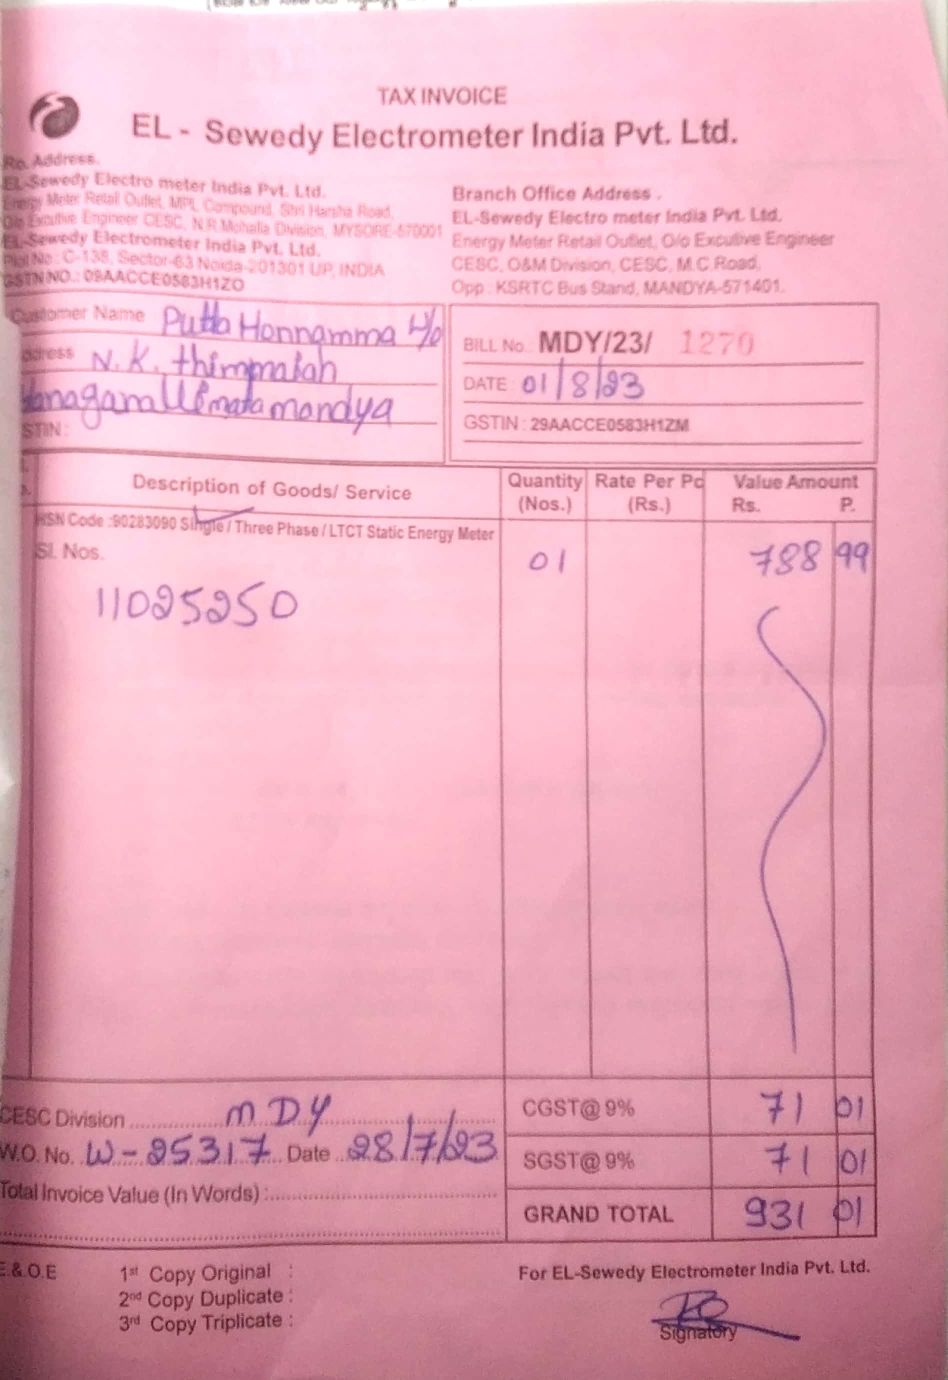 TAX INVOICE
EL - Sewedy Electrometer India Pvt. Ltd.
Ro. Address.
EL-Sewedy Electro meter India Pvt. Ltd.
Energy Meter Retail Outlet, MPL Compound, Shri Harsha Road,
O/o Excutive Engineer CESC, N.R.Mohalla Division, MYSORE-570001
EL-Sewedy Electrometer India Pvt. Ltd.
Plot No : C-138, Sector-63 Noida-201301 UP, INDIA
GSTN NO.: 09AACCE0583H1ZO
Branch Office Address .
EL-Sewedy Electro meter India Pvt. Ltd.
Energy Meter Retail Outlet, O/o Excutive Engineer
CESC, O&M Division, CESC, M.C.Road,
Opp : KSRTC Bus Stand, MANDYA-571401.
Customer Name Putta Honnamma
ddress N.K. thimmaiah
mandya
STIN :
BILL No. MDY/23/ 1270
DATE : 01/8/23
GSTIN : 29AACCE0583H1ZM
Description of Goods/ Service
Quantity (Nos.)
Rate Per Pc (Rs.)
Value Amount
Rs. P.
HSN Code :90283090 Single / Three Phase / LTCT Static Energy Meter
Sl. Nos.
01 788 99
11025250
CESC Division MDY
CGST@ 9% 71 01
W.O. No. W-25317 Date 28/7/23
SGST@ 9% 71 01
Total Invoice Value (In Words) :
GRAND TOTAL 931 01
E.&.O.E
1st Copy Original :
2nd Copy Duplicate :
3rd Copy Triplicate :
For EL-Sewedy Electrometer India Pvt. Ltd.
Signatory